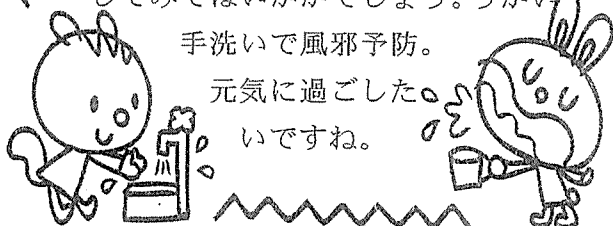 してみてはいかがでしょう。うがい
手洗いで風邪予防。
元気に過ごした
いですね。